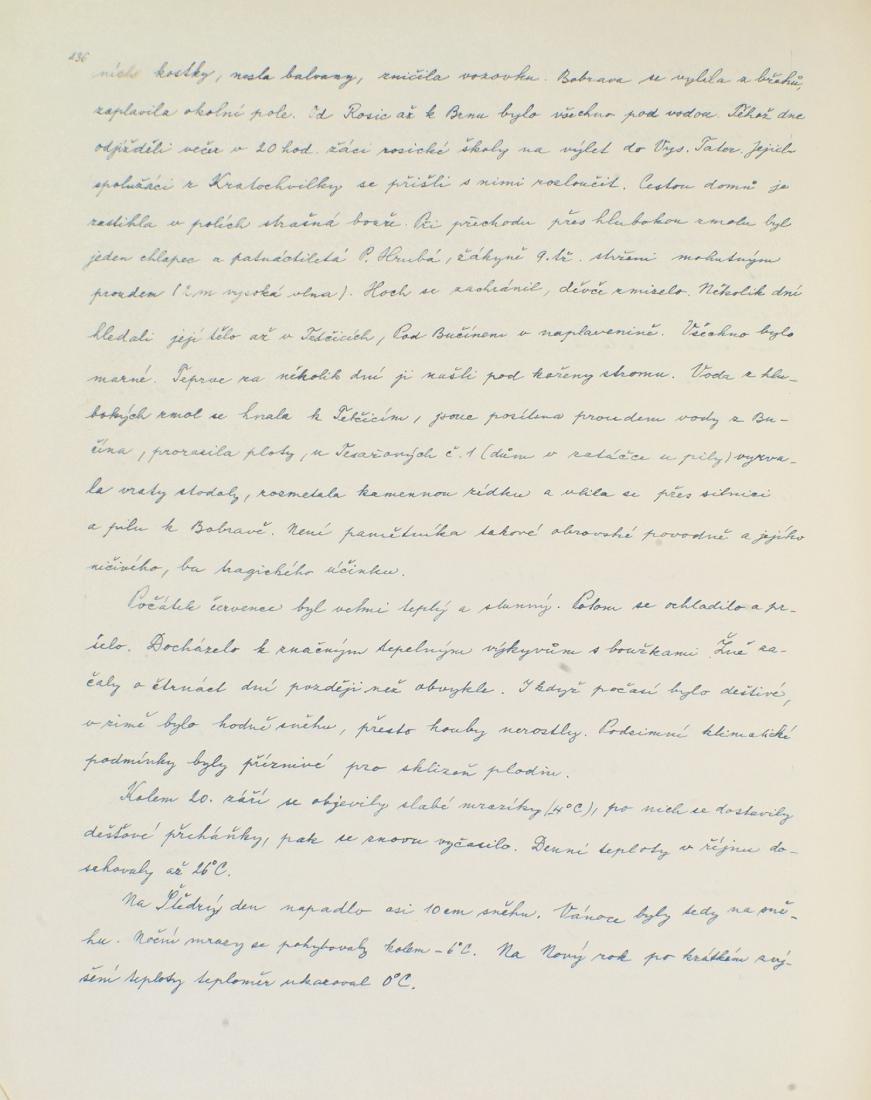 136
ních kostky, nesla balvany, zničila vozovku. Bobrava se vylila z břehů,
zaplavila okolní pole. Od Rosic až k Brnu bylo všechno pod vodou. Téhož dne
odjížděli večer v 20 hod. žáci rosické školy na výlet do Vys. Tater. Jejich
spolužáci z Kratochvilky se přišli s nimi rozloučit. Cestou domů je
zastihla v polích strašná bouře. Při přechodu přes hlubokou zmolu byl
jeden chlapec a patnáctiletá P. Hrubá, žákyně 9. tř. strženi mohutným
proudem (2 m vysoká vlna). Hoch se zachránil, děvče zmizelo. Několik dní
hledali její tělo až v Tetčicích, Pod Bučínem v naplavenině. Všechno bylo
marné. Teprve za několik dní ji našli pod kořeny stromu. Voda z hlu-
bokých zmol se hnala k Tetčicím, jsouc posílena proudem vody z Bu-
čína, prorazila ploty, u Tesařových č. 1 (dům v zatáčce u pily) vyrva-
la vraty stodoly, rozmetala kamennou zídku a vlila se přes silnici
a pilu k Bobravě. Není pamětníka takové obrovské povodně a jejího
ničivého, ba tragického účinku.
Počátek července byl velmi teplý a slunný. Potom se ochladilo a pr-
šelo. Docházelo k značným tepelným výkyvům s bouřkami. Žně za-
čaly o čtrnáct dní později než obvykle. I když počasí bylo deštivé,
v zimě bylo hodně sněhu, přesto houby nerostly. Podzimní klimatické
podmínky byly příznivé pro sklizeň plodin.
Kolem 20. září se objevily slabé mrazíky (4°C), po nich se dostavily
dešťové přeháňky, pak se znovu vyčasilo. Denní teploty v říjnu do-
sahovaly až 26°C.
Na Štědrý den napadlo asi 10 cm sněhu. Vánoce byly tedy na sně-
hu. Noční mrazy se pohybovaly kolem -6°C. Na Nový rok po krátkém zvý-
šení teploty teploměr ukazoval 0°C.